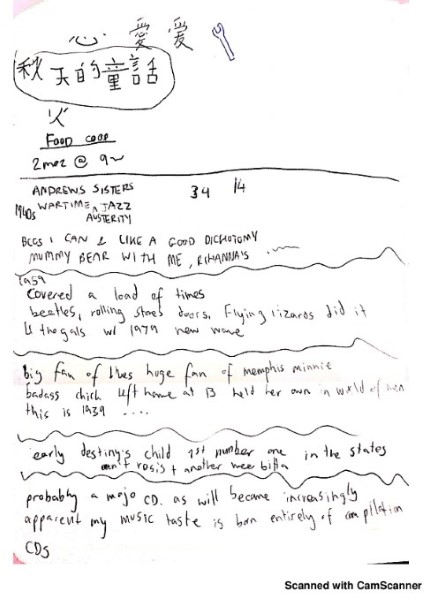 心 愛 爱
秋天的童話
火
FOOD COOP
ANDREWS SISTERS 34 14
1940s WARTIME JAZZ
AUSTERITY
I CAN LIKE A GOOD DICHOTOMY
MUMMY BEAR WITH ME, RIHANNA'S
1959
Covered a load of times
beetles, rolling stones doors, Flying lizards did it
the gals w/ 1979 new wave
big fan of blues huge fan of memphis minnie
badass chick left home at 13 held her own in world of men
this is 1939 ....
early destiny's child 1st number one in the states
+ another wee bitta
probably a mojo CD. as will become increasingly
apparent my music taste is born entirely of compilation
CDs
Scanned with CamScanner